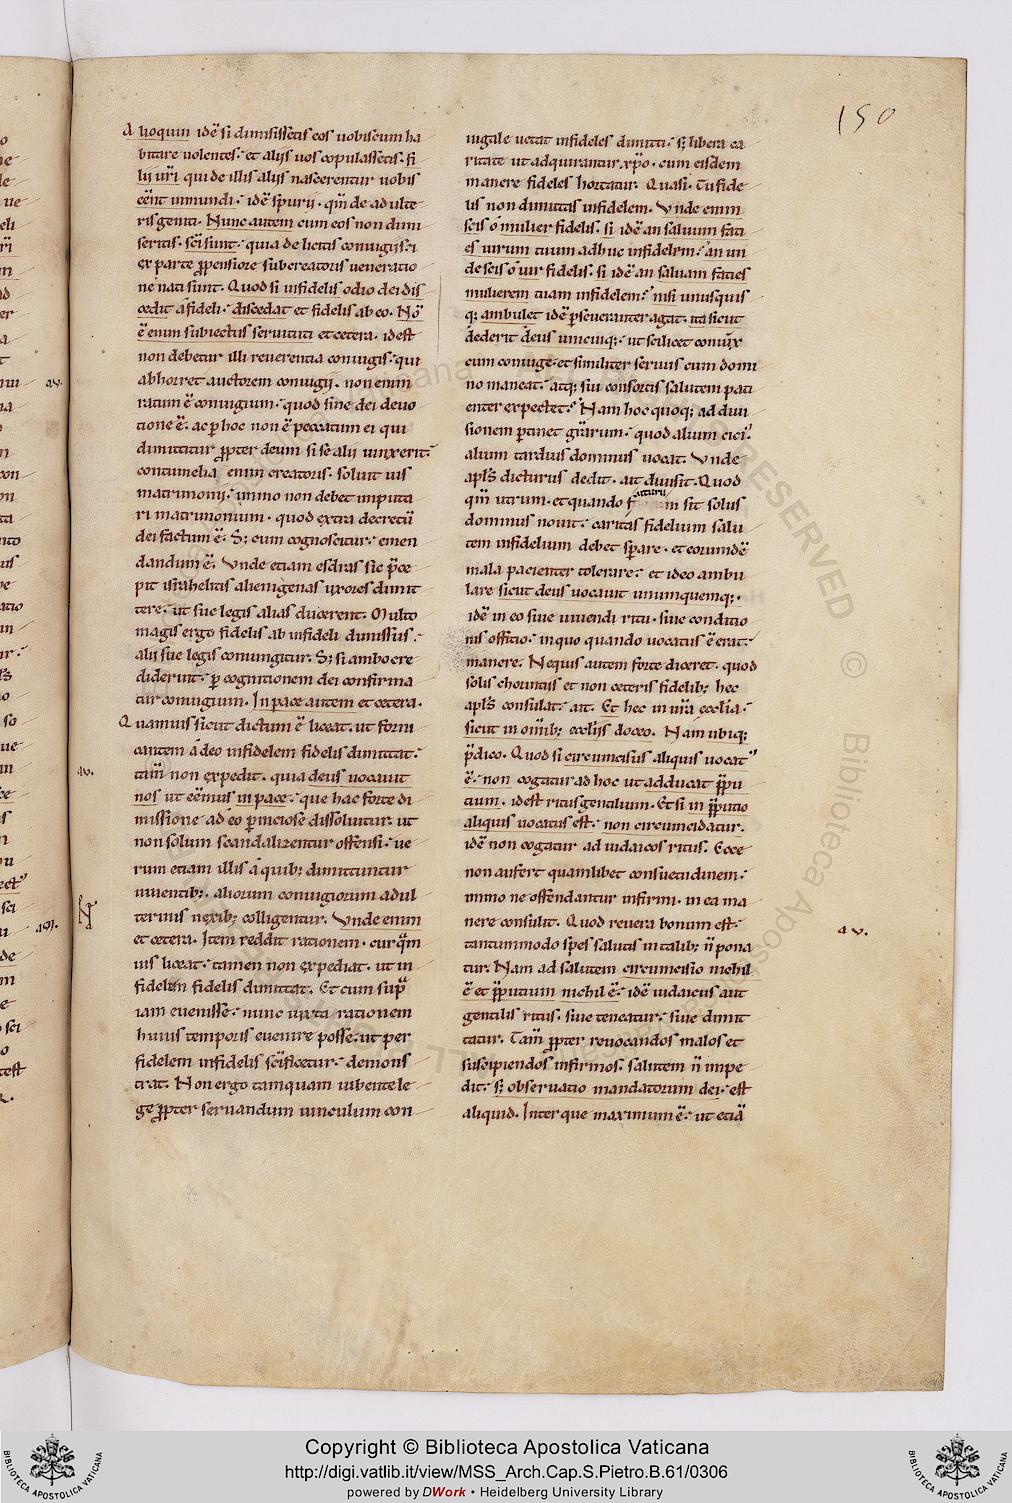 150
Alioquin idē si dimisissetis eos uobiscum ha
bitare uolentes: et alijs uos copulassetis. fi
lij ur̄i qui de illis alijs nascerentur uobis
eēnt inmundi. idē spurij. qm̄ de adulte
ris geniti. Nunc autem cum eos non dimi
seritis. sc̄i sunt: quia de licitis coniugijs. i
ex parte ꝓpensiore sub creatoris ueneratio
ne nati sunt. Quod si infidelis odio dei dis
cedit a fideli: discedat et fidelis ab eo. Nō
ē enim subiectus seruituti et cetera. id est
non debetur illi reuerentia coniugis: qui
abhorret auctorem coniugij. non enim
av.
ratum ē coniugium: quod sine dei deuo
tione ē. ac ꝑ hoc non ē peccatum ei qui
dimittitur ꝓpter deum si se alij uinxerit:
contumelia enim creatoris. soluit ius
matrimonij: immo non debet imputa
ri matrimonium. quod extra decretū
dei factum ē. S; cum cognoscitur: emen
dandum ē. Vnde etiam esdras sic p̄ce
pit israhelitis alienigenas uxores dimit
tere: ut sue legis alias ducerent. Multo
magis ergo fidelis ab infideli dimissus:
alij sue legis coniungitur. S; si ambo cre
diderint: ꝑ cognitionem dei confirma
tur coniugium. In pace autem et cetera.
Quamuis sicut dictum ē liceat. ut forni
cantem a deo infidelem fidelis dimittat:
tam̄ non expedit. quia deus uocauit
av.
nos ut eēmus in pace: que hac forte di
missione adeo ꝑniciose dissoluitur. ut
non solum scandalizentur offensi: ue
rum etiam illis a quib; dimittuntur
uiuentib;. aliorum coniugiorum adul
terinis nexib; colligentur. Vnde enim
et cetera. Item reddit rationem. cur qm̄
uis liceat: tamen non expediat. ut in
fidelem fidelis dimittat. Et cum sup̄
iam euenisse: nunc iuxta rationem
huius temporis euenire posse. ut per
fidelem infidelis sc̄ificetur: demons
trat. Non ergo tamquam iubente le
ge ꝓpter seruandum uinculum con
iugale uetat infideles dimitti: s; libera ca
ritate ut adquirantur xp̄o. cum eisdem
manere fideles hortatur. Quasi. Tu fide
lis non dimittas infidelem. Vnde enim
scis o mulier fidelis. si idē an saluum faci
es uirum tuum adhuc infidelem: an un
de scis o uir fidelis. si idē an saluam facies
mulierem tuam infidelem: nisi unusquis
q; ambulet idē ꝑseueranter agat. ita sicut
dederit deus unicuiq;: ut scilicet coniux
cum coniuge. et similiter seruus cum domi
no maneat: atq; sui consortis salutem pati
enter expectet: Nam hoc quoq; ad diui
sionem ꝑtinet gr̄arum: quod alium cici'.
alium tardius dominus uocat. Vnde
apl̄s dicturus dedit. ait diuisit. Quod
qm̄ utrum. et quando futurum sit solus
dominus nouit: caritas fidelium salu
tem infidelium debet sꝑare. et eorumdē
mala pacienter tolerare: et ideo ambu
lare sicut deus uocauit unumquemq;.
idē in eo siue uiuendi ritu. siue conditio
nis officio: in quo quando uocatus ē erat:
manere. Nequis autem forte diceret. quod
solis chorintijs et non ceteris fidelib; hec
apl̄s consulat: ait. Et hec in um̄a ecclīa:
sicut in omīb; eccl̄ijs doceo. Nam ubiq;
p̄dico. Quod si circumcisus aliquis uocat'
ē: non cogatur ad hoc ut adducat ꝓpu
cium. id est ritus gentilium. Et si in ꝓputio
aliquis uocatus est: non circumcidatur.
idē non cogatur ad iudaicos ritus. Ecce
non aufert quamlibet consuetudinem:
immo ne offendantur infirmi. in ea ma
nere consulit. Quod reuera bonum est:
av.
tantummodo spes salutis in talib; n̄ pona
tur. Nam ad salutem circumcisio nichil
ē et ꝓputium nichil ē: idē iudaicus aut
gentilis ritus. siue teneatur: siue dimit
tatur. Tam̄ ꝓpter reuocandos malos et
suscipiendos infirmos: salutem n̄ impe
dit: s; obseruatio mandatorum dei: est
aliquid. Inter que maximum ē: ut etiā
Copyright © Biblioteca Apostolica Vaticana
http://digi.vatlib.it/view/MSS_Arch.Cap.S.Pietro.B.61/0306
powered by DWork • Heidelberg University Library